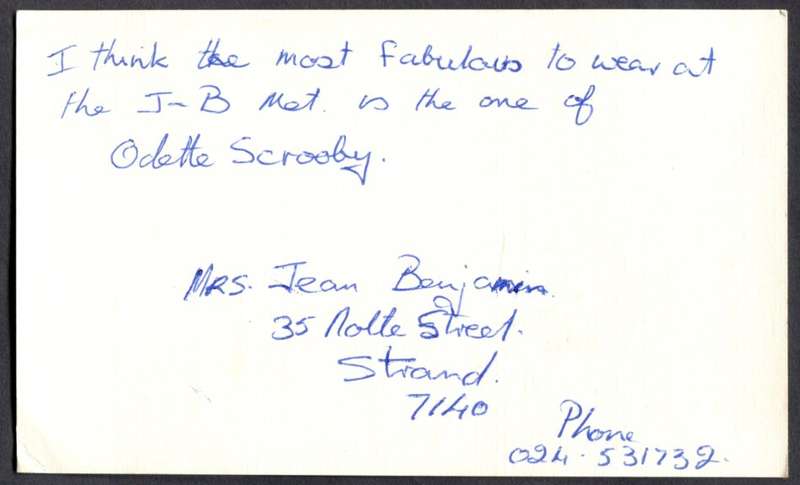 I think the most Fabulous to wear at
the J-B Met. is the one of
Odette Scrooby.
Mrs. Jean Benjamin.
35 Nolte Street.
Strand.
7140
Phone
024. 531732.